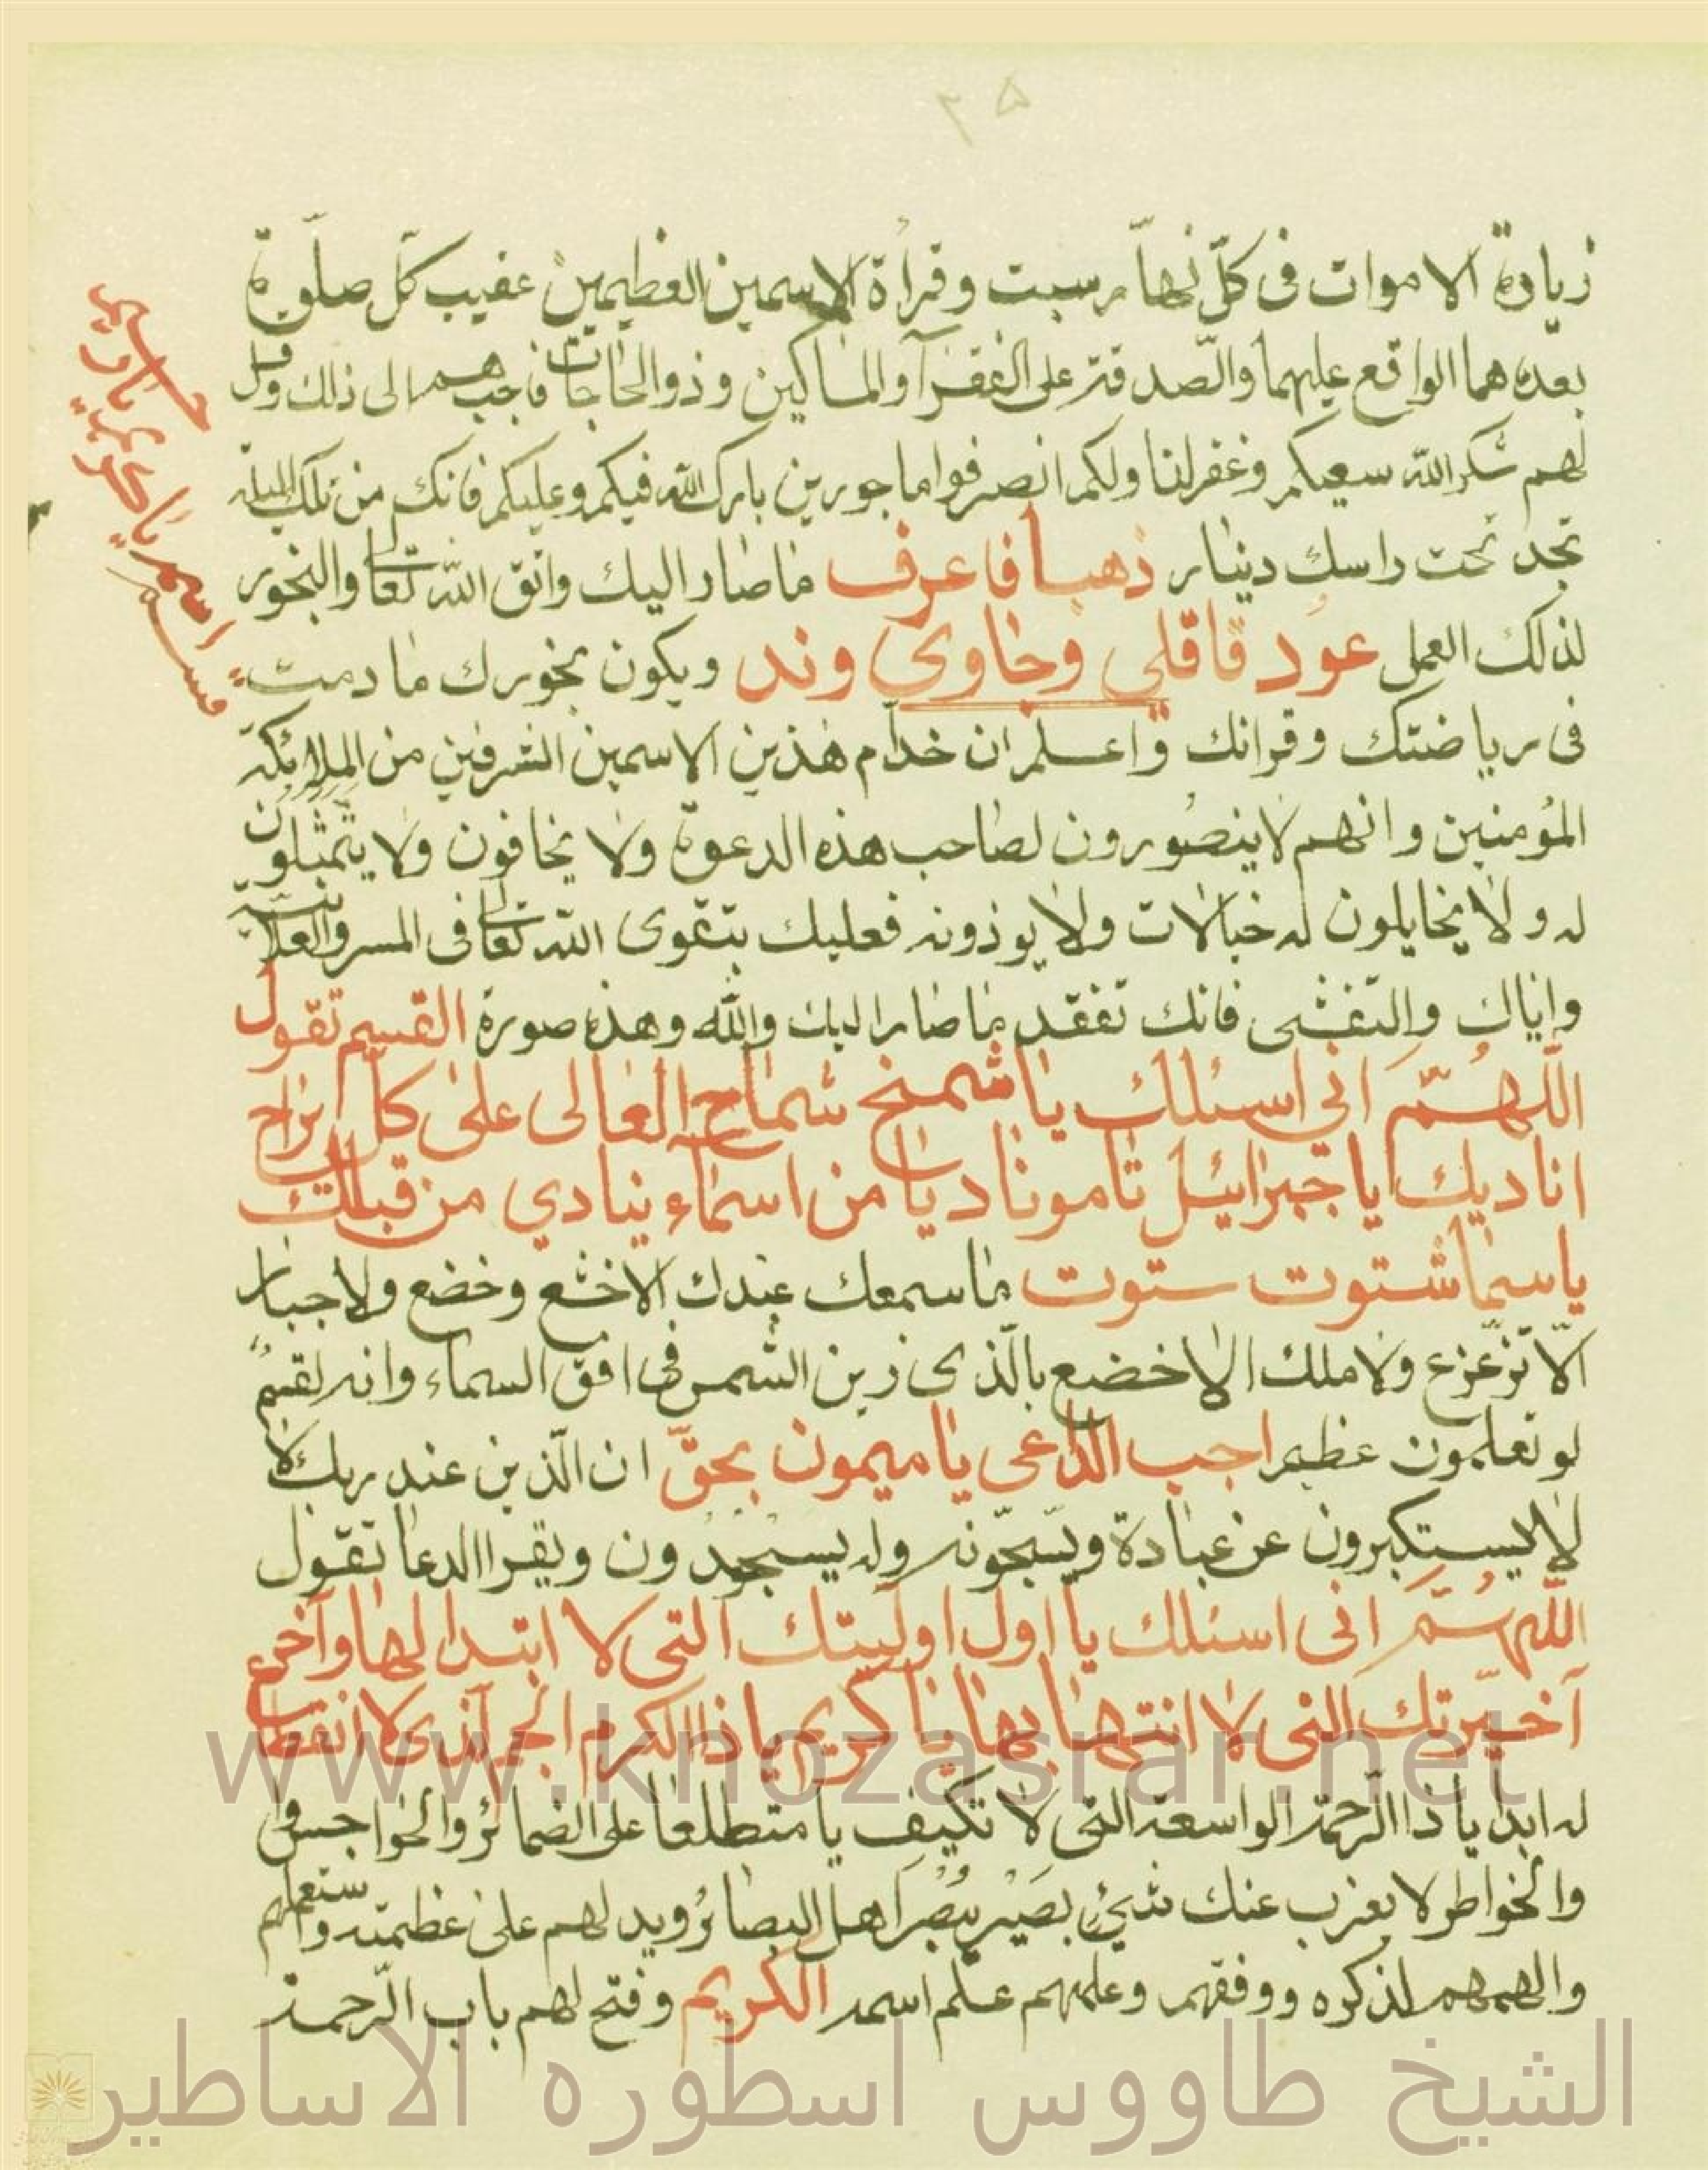 ۳۵
زيارة الاموات فى كلّ نهار سبت وقرأة الاسمين العظيمين عقيب كلّ صلوة
بعدهما الواقع عليهما والصّدقة على الفقرآ والمساكين وذو الحاجات فاجبهم الى ذلك وقل
لهم شكر الله سعيكم وغفر لنا ولكم انصرفوا ماجورين بارك الله فيكم وعليكم فانك من تلك الليلة
تجد تحت راسك دينار ذهبا فاعرف ما صار اليك واتق الله تعالى والبخور
لذلك العمل عود قاقلى وجاوى وند ويكون بخورك ما دمت
فى رياضتك وقرانك واعلم ان خدآم هذين الاسمين الشرفين من الملائكة
المؤمنين وانهم لا ينصورون لصاحب هذه الدعوة ولا يخافون ولا يتمثلون
له ولا يخايلون له خيالات ولا يوذونه فعليك بتقوى الله تعالى فى السر والعلانية
واياك والتفشى فانك تفقد ما صار اليك والله وهذه صورة القسم تقول
اللهُمَّ انى اسئلك يا شمخ شماخ العالى على كل براخ
اناديك ايا جبرائيل تامونا ديا من اسماء ينادي من قبالك
يا سما شتوت ستوت ما سمعك عبدك الا خشع وخضع ولا جبار
الّا تزعزع ولا ملك الا خضع بالّذى زين الشمس فى افق السماء وانه لقسم
لو تعلمون عظيم اجب الداعى يا ميمون بحقّ ان الّذين عند ربك لا
لا يستكبرون عن عبادة ويسبّحونه وله يسجدون ويقرا الدعا تقول
اللّهُمَّ انى اسئلك يا اول اوليتك التى لا ابتدا لها وآخر
آخيّرتك التى لا انتها بها يا كريم يا ذا الكرم الجم آلذى لا انقطاع
له ابدا يا ذا الرّحمة الواسعة التى لا تكيف يا متطلعا على الضمائر والخواجس
والخواطر لا يعزب عنك شىء بَصَير بَصَر اهل البصائر ويد لهم على عظمته واستعملهم
والهمهم لذكره ووفقهم وعلمهم علم اسمه الكريم وفتح لهم باب الرّحمة
www.knozasrar.net
الشيخ طاووس اسطوره الاساطير